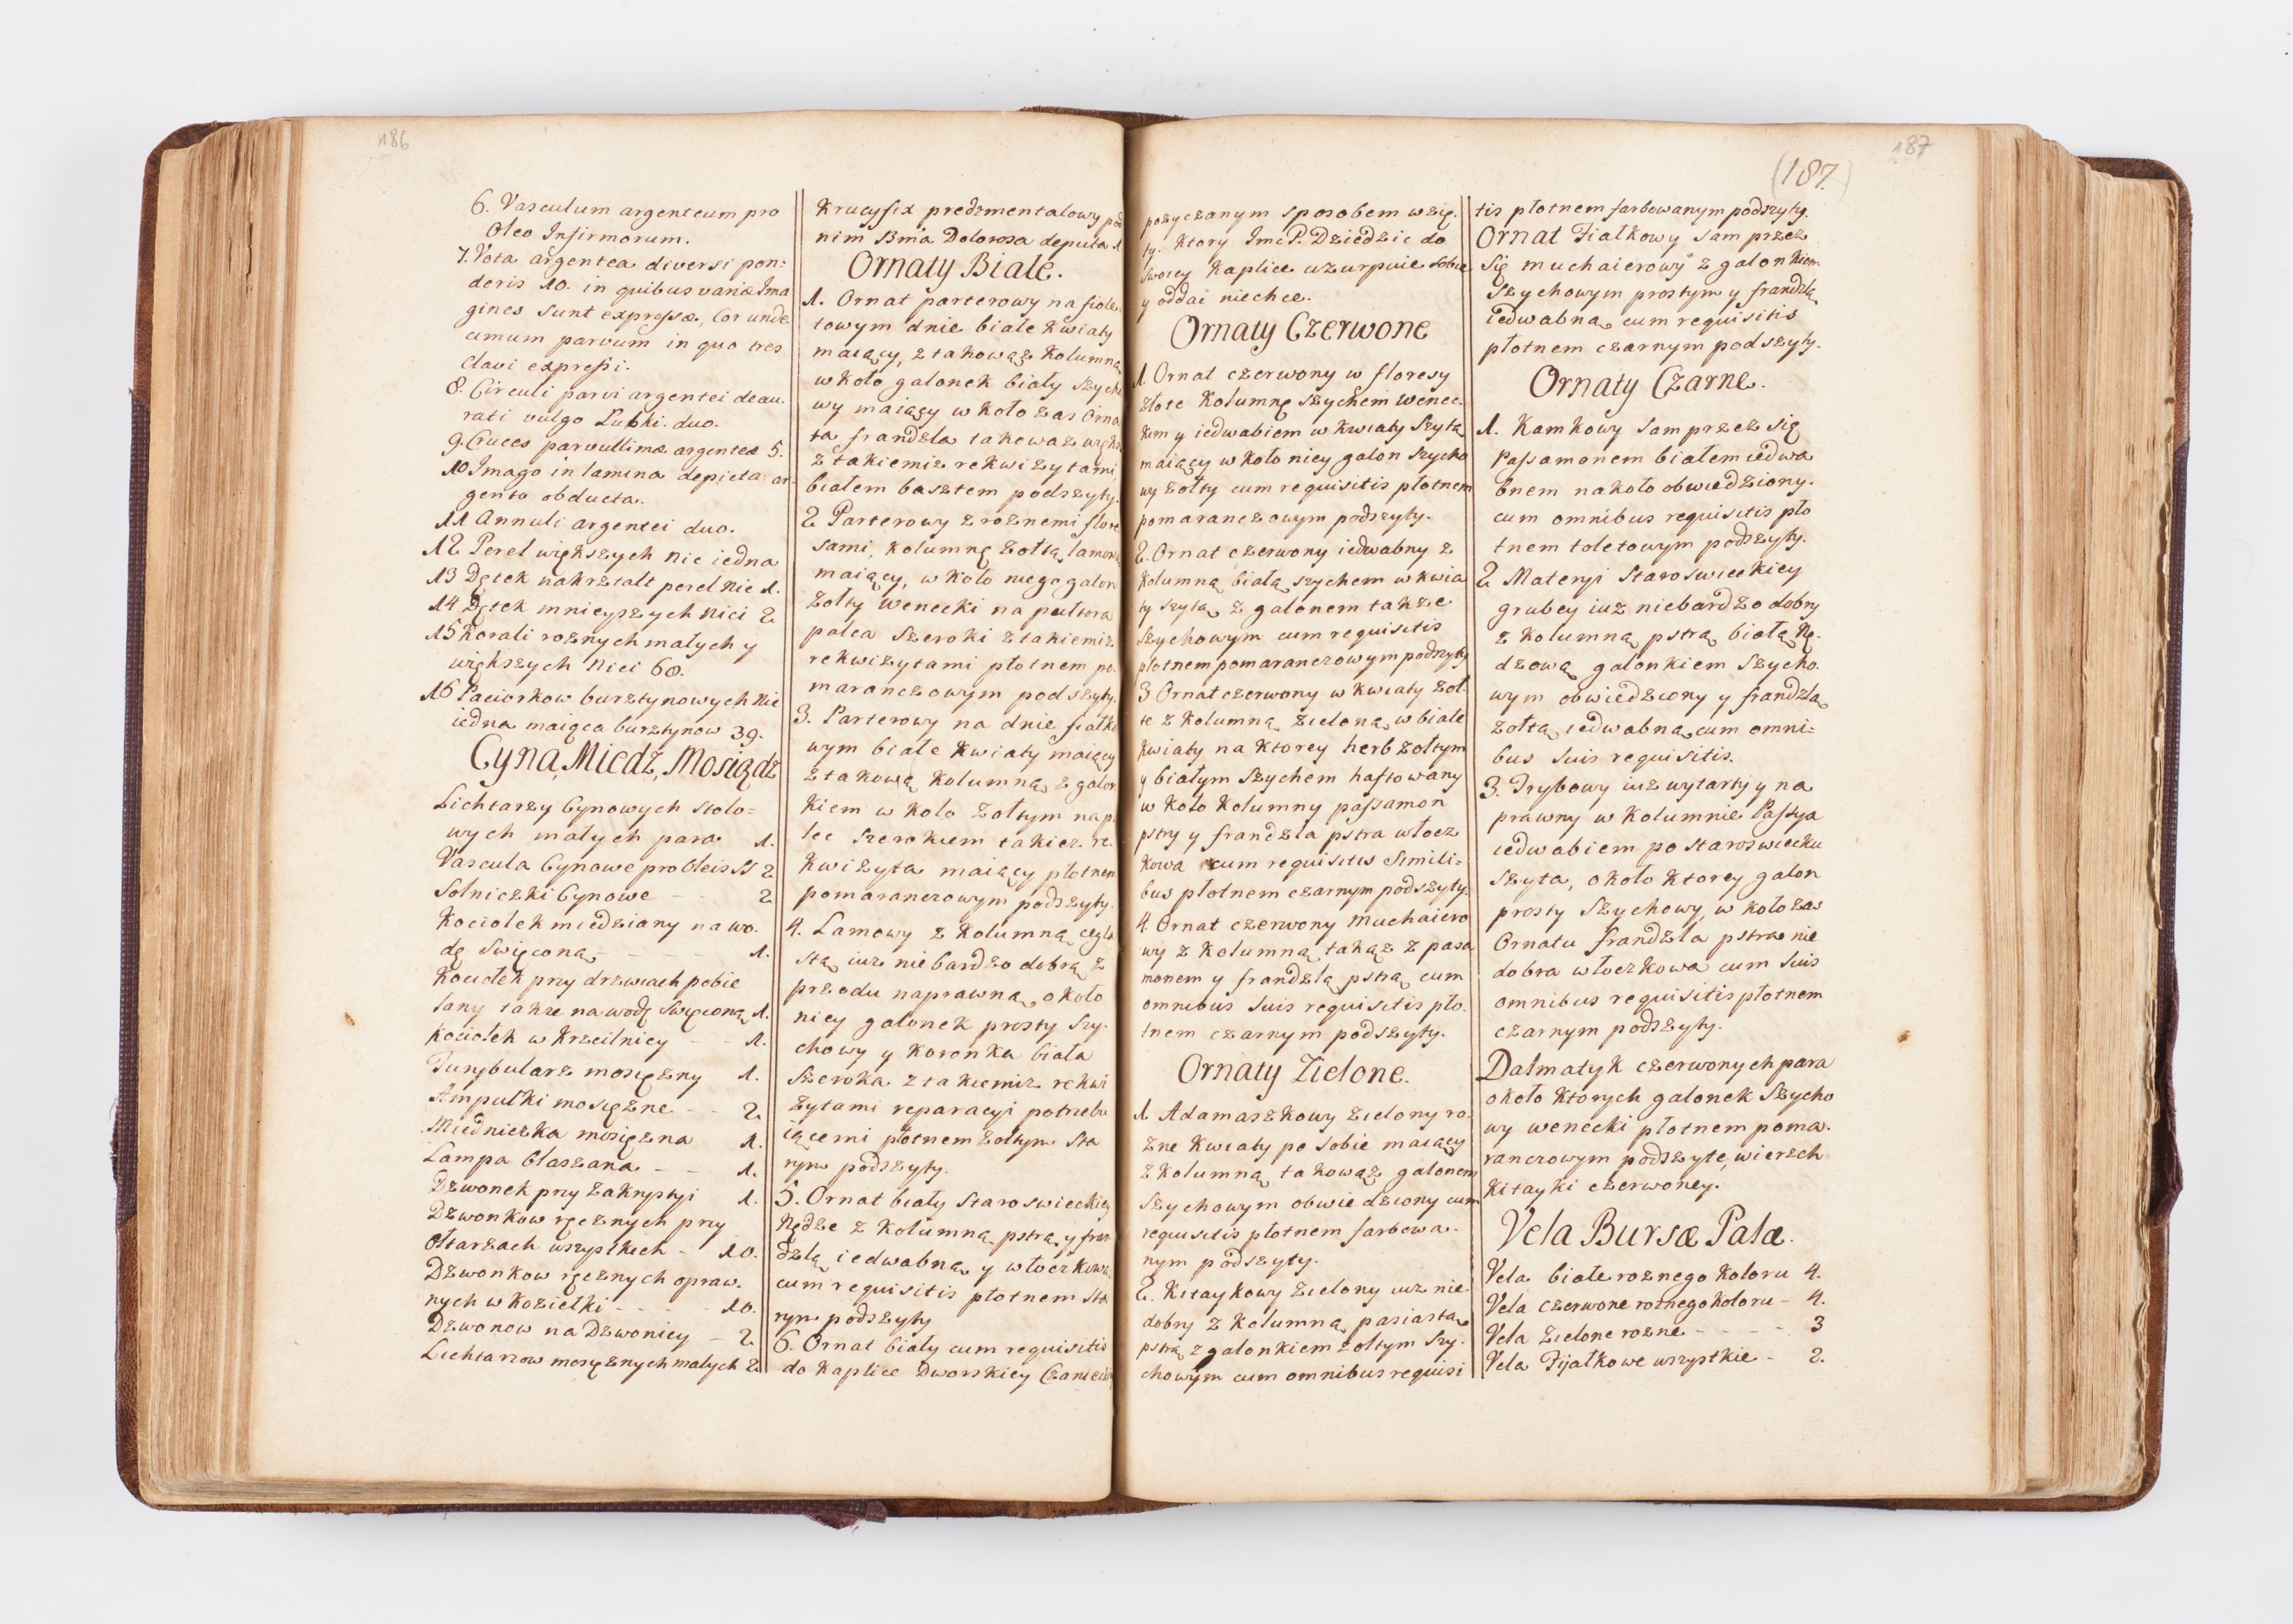 186
6. Vasculum argenteum pro
Oleo Infirmorum.
7. Vota argentea diversi pon=
deris 10. in quibus variæ Ima
gines sunt expressæ, Cor unde
cimum parvum in quo tres
Clavi expressi.
8. Circuli parvi argentei deau.
rati vulgo Lubki. duo.
9. Cruces parvullimæ argenteæ 5.
10 Imago in lamina depicta ar-
gento obducta.
11 Annuli argentei duo.
12 Pereł większych nic iedna
13 Dętek nakształt pereł nic 1.
14 Dętek mnieyszych nici 2
15 Korali roznych małych y
większych nici 68.
16 Paciorkow bursztynowych nic
iedna maiąca bursztynow 39.
Cyna, Miedź, Mosiądz
Lichtarzy Cynowych stolo=
wych małych para 1.
Vascula Cynowe pro Oleis SS 2
Solniczki Cynowe - - 2
Kociołek miedziany na wo.
dę swięconą - - - - 1.
Kociołek przy drzwiach pobie
lany takze na wodę swięconą 1.
Kociołek w Krzcilnicy - - 1.
Turybularz mosięzny 1.
Ampułki mosięzne - - 2
Miedniczka mosięzna 1.
Lampa blaszana - - 1.
Dzwonek przy Zakrystyi 1.
Dzwonkow ręcznych przy
Ołtarzach wszystkich - 10.
Dzwonkow ręcznych opraw.
nych w Koziełki - - - - 10.
Dzwonow na Dzwonicy - 2
Lichtarzow mosięznych małych 2
Krucyfix predzmentalowy pod
nim Bma Dolorosa depicta 1
Ornaty Biale.
1. Ornat parterowy na fiole.
towym dnie białe kwiaty
maiący, z takowąz Kolumną
w koło galonek biały szycho
wy maiący w koło zas Orna
ta frandzla takowaz większ
z takiemiz rekwizytami,
białem basztem podszyty.
2 Parterowy z roznemi flore
sami, Kolumnę zołtą lamową
maiący, w koło niego galon
zołty wenecki na pułtora
palca szeroki z takiemiz
rekwizytami płotnem po.
maranczowym podszyty.
3. Parterowy na dnie fiałko
wym białe kwiaty maiący
z takową Kolumną z galon
kiem w koło zołtym na p.
lec szerokiem takiez re.
kwizyta maiący płotnem
pomaranczowym podszyty.
4. Lamowy z kolumną cegla
stą iuz nie bardzo dobrą z
przodu naprawną, około
niey galonek prosty szy.
chowy y koronka biała
szeroka z takiemiz rekwi
zytami reparacyi potrzebu
iącemi płotnem zołtym sta
rym podszyty.
5. Ornat biały staroswieckiey
Kędze z kolumną pstrą y fran
dzlą iedwabną y włoczkową
cum requisitis płotnem sta
rym podszyty
6. Ornat biały cum requisitis
do Kaplice Dworskiey Czaniecki
187
(187.)
pozyczanym sposobem wzię.
ty. ktory Jmc P. Dziedzic do
swoiey Kaplice uzurpuie sobie
y oddai niechce.
Ornaty Czerwone
1. Ornat czerwony w floresy
złote Kolumnę szychem wenec.
kim y iedwabiem w kwiaty szytą
maiący w koło niey galon szycho
wy zołty cum requisitis płotnem
pomaranczowym podszyty.
2. Ornat czerwony iedwabny z
kolumną białą szychem w kwia
ty szytą z galonem takze
szychowym cum requisitis
płotnem pomaranczowym podszyty
3 Ornat czerwony w kwiaty zoł.
te z kolumną zieloną w białe
kwiaty na ktorey herb zołtym
y białym szychem haftowany
w koło kolumny passamon
pstry y frandzla pstra włocz
kowa cum requisitis simili=
bus płotnem czarnym podszyty.
4. Ornat czerwony muchaiero
wy z kolumną takąz z pasa
monem y frandzlą pstrą cum
omnibus suis requisitis pło.
tnem czarnym podszyty.
Ornaty Zielone.
1. Adamaszkowy zielony ro.
zne kwiaty po sobie maiący
z kolumną takowąz galonem
szychowym obwiedziony cum
requisitis płotnem farbowa.
nym podszyty.
2. Kitaykowy zielony iuz nie
dobry z kolumną pasiastą
pstrą z galonkiem zołtym szy.
chowym cum omnibus requisi
tis płotnem farbowanym podszyty.
Ornat Fiałkowy sam przez
się muchaierowy z galonkiem
szychowym prostym y frandzlą
iedwabną cum requisitis
płotnem czarnym podszyty.
Ornaty Czarne.
1. Kamkowy sam przez się
Passamonem białem iedwa
bnem nakoło obwiedziony.
cum omnibus requisitis pło
tnem toletowym podszyty.
2 Materyi staroswieckiey
grubey iuz niebardzo dobry
z kolumną pstrą białą Kę.
dzową galonkiem szycho.
wym obwiedziony y frandzlą
zołtą iedwabną cum omni=
bus suis requisitis.
3. Trybowy iuz wytarty y na
prawny w kolumnie Passya
iedwabiem po staroswiecku
szyta, około ktorey galon
prosty szychowy, w koło zas
Ornatu frandzla pstra nie
dobra włoczkowa cum suis
omnibus requisitis płotnem
czarnym podszyty.
Dalmatyk czerwonych para
około ktorych galonek szycho
wy wenecki płotnem poma.
ranczowym podszyte, wierzch
kitayki czerwoney.
Vela Bursæ Palæ.
Vela białe roznego koloru 4.
Vela czerwone roznego koloru - 4.
Vela zielone rozne - - - - 3
Vela Fijałkowe wszystkie - 2.